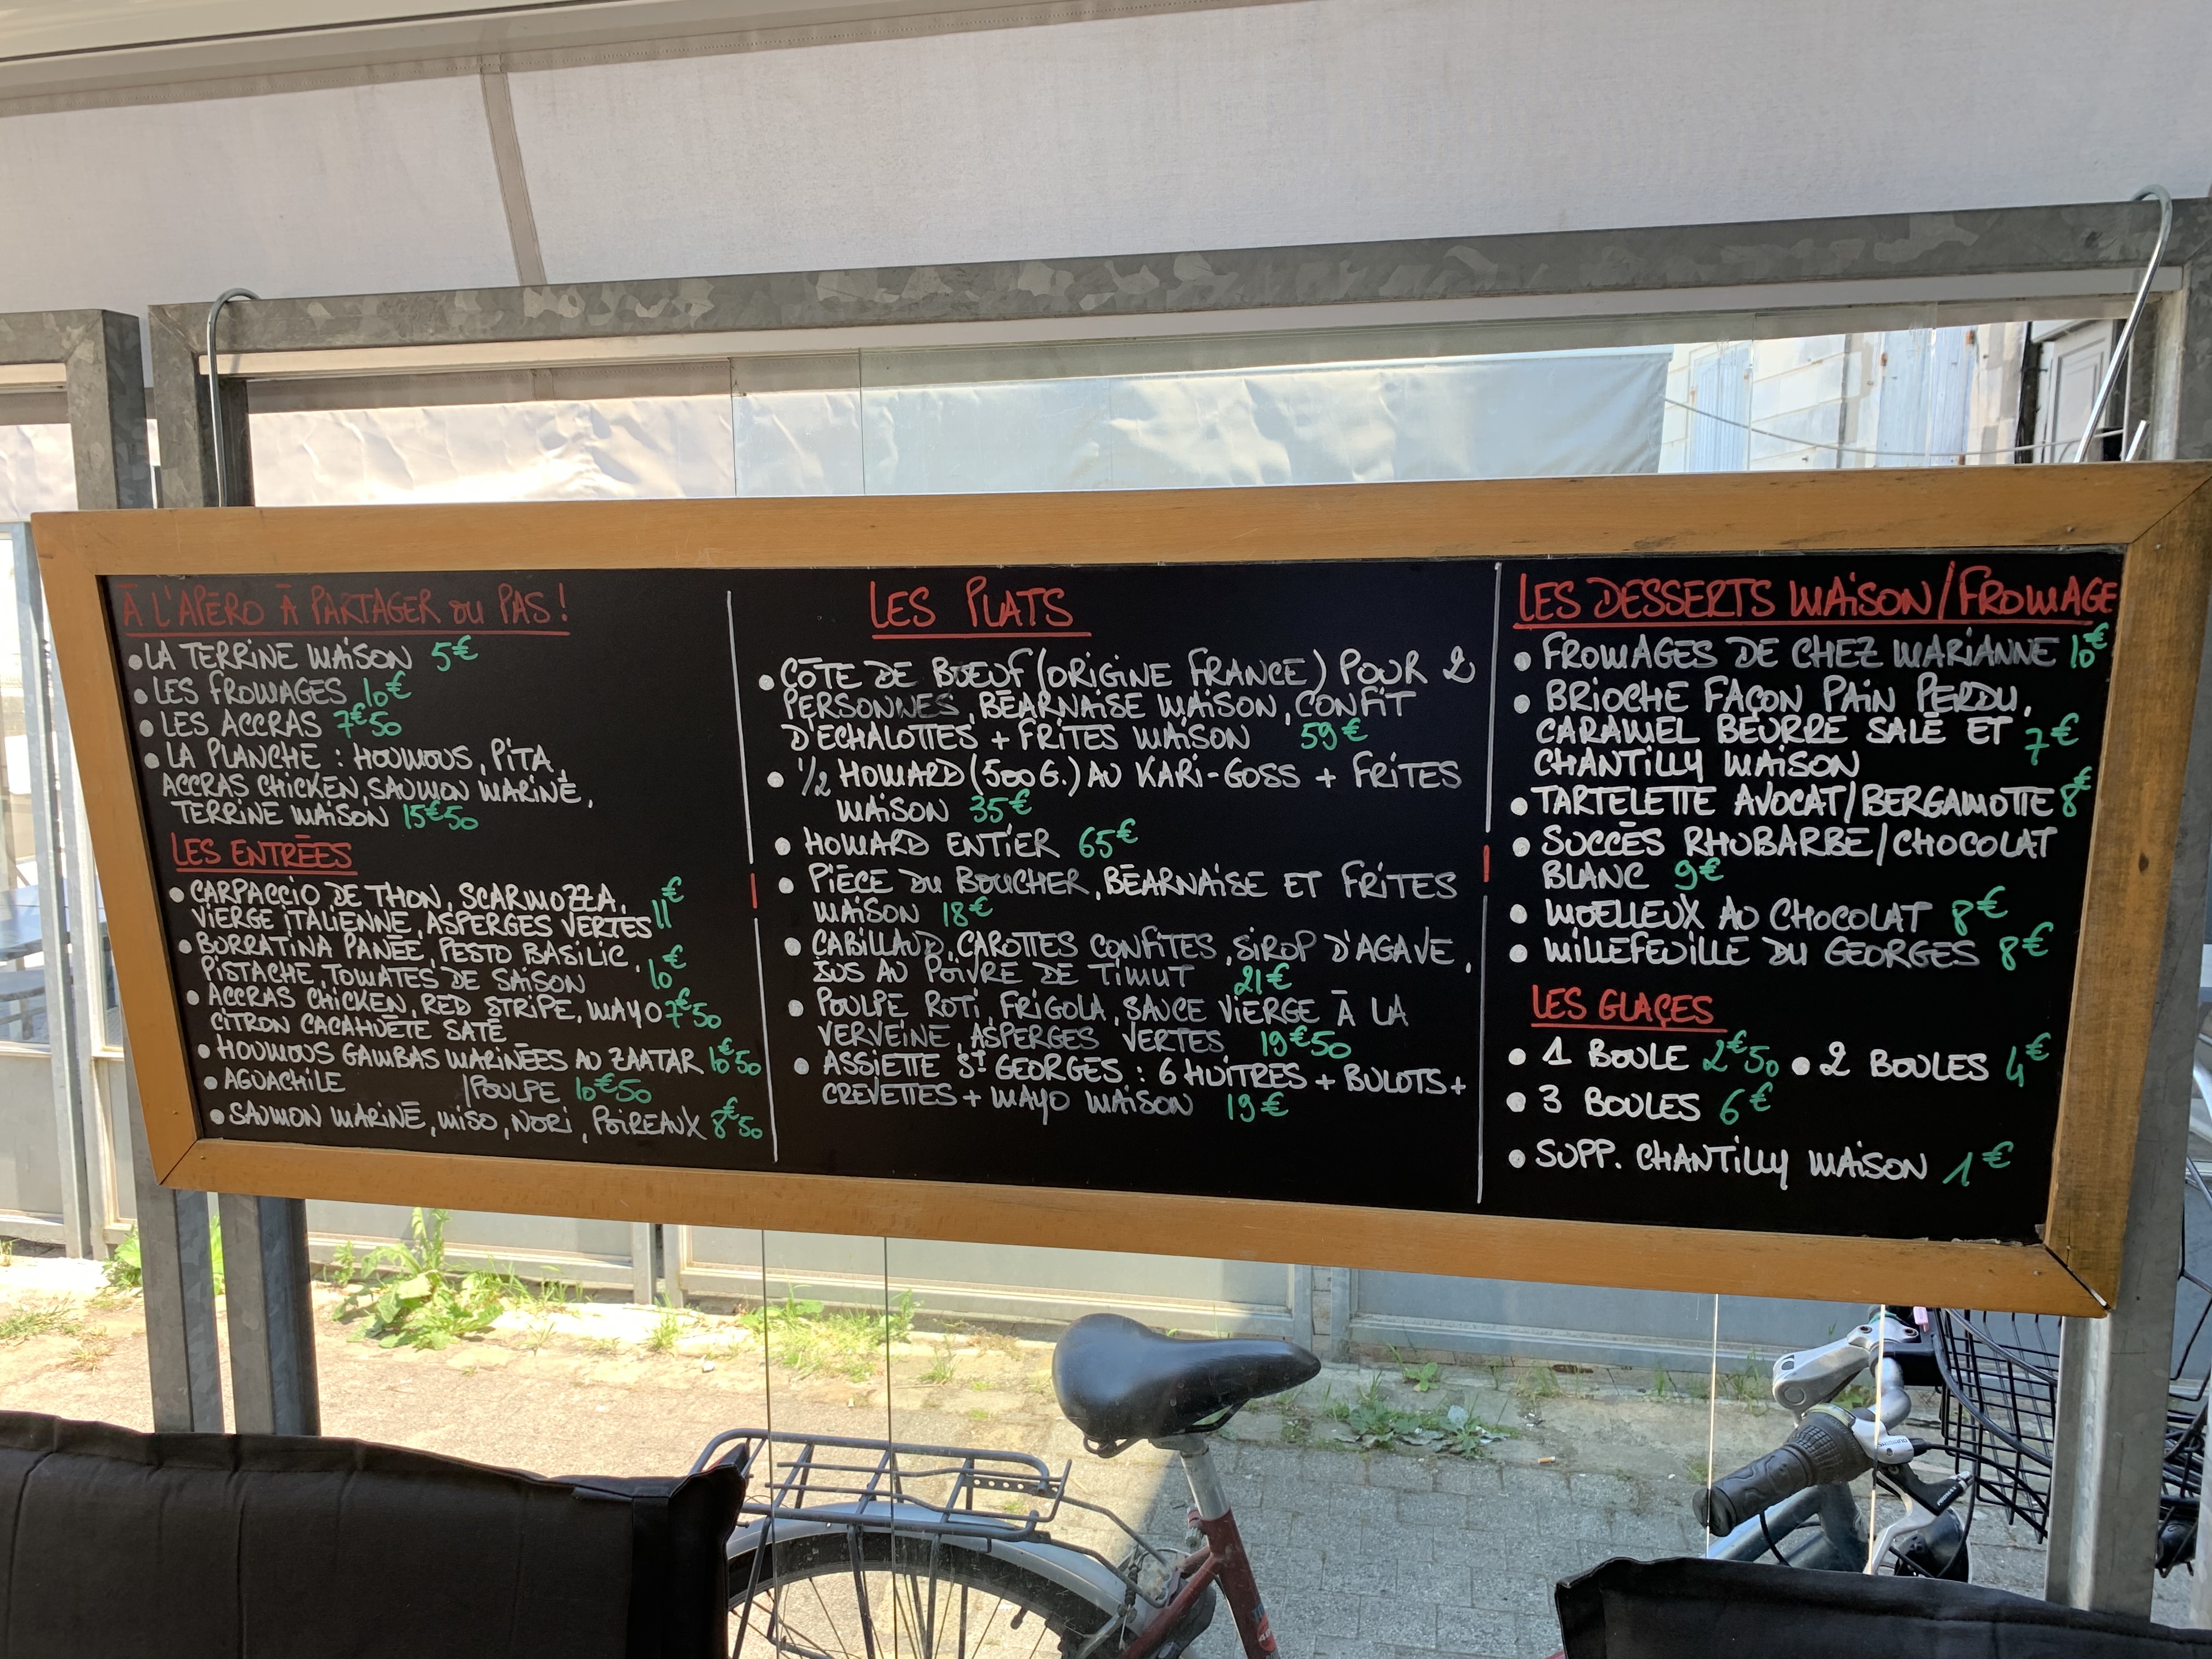 À L'APÉRO À PARTAGER OU PAS !
• LA TERRINE MAISON 5€
• LES FROMAGES 10€
• LES ACCRAS 7€50
• LA PLANCHE : HOUMOUS, PITA,
ACCRAS CHICKEN, SAUMON MARINÉ,
TERRINE MAISON 15€50
LES ENTRÉES
• CARPACCIO DE THON, SCARMOZZA,
VIERGE ITALIENNE, ASPERGES VERTES 11€
• BURRATINA PANÉE, PESTO BASILIC,
PISTACHE, TOMATES DE SAISON 10€
• ACCRAS CHICKEN, RED STRIPE, MAYO 7€50
CITRON CACAHUÈTE SATÉ
• HOUMOUS GAMBAS MARINÉES AU ZAATAR 10€50
• AGUACHILE /POULPE 10€50
• SAUMON MARINÉ, MISO, NORI, POIREAUX 8€50
LES PLATS
• CÔTE DE BŒUF (ORIGINE FRANCE) POUR 2
PERSONNES, BÉARNAISE MAISON, CONFIT
D'ÉCHALOTTES + FRITES MAISON 59€
• 1/2 HOMARD (500G.) AU KARI-GOSS + FRITES
MAISON 35€
• HOMARD ENTIER 65€
• PIÈCE DU BOUCHER, BÉARNAISE ET FRITES
MAISON 18€
• CABILLAUD, CAROTTES CONFITES, SIROP D'AGAVE,
JUS AU POIVRE DE TIMUT 21€
• POULPE ROTI, FRIGOLA, SAUCE VIERGE À LA
VERVEINE, ASPERGES VERTES 19€50
• ASSIETTE ST GEORGES : 6 HUÎTRES + BULOTS +
CREVETTES + MAYO MAISON 19€
LES DESSERTS MAISON/FROMAGE
• FROMAGES DE CHEZ MARIANNE 10€
• BRIOCHE FAÇON PAIN PERDU,
CARAMEL BEURRE SALÉ ET 7€
CHANTILLY MAISON
• TARTELETTE AVOCAT/BERGAMOTTE 8€
• SUCCÈS RHUBARBE/CHOCOLAT
BLANC 9€
• MOELLEUX AU CHOCOLAT 8€
• MILLEFEUILLE DU GEORGES 8€
LES GLAÇES
• 1 BOULE 2€50 • 2 BOULES 4€
• 3 BOULES 6€
• SUPP. CHANTILLY MAISON 1€